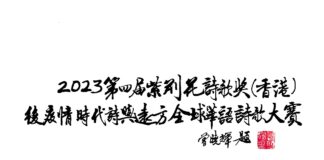 2023第四届紫荊花詩歌奖(香港)
後疫情時代詩與遠方全球華語詩歌大賽
題